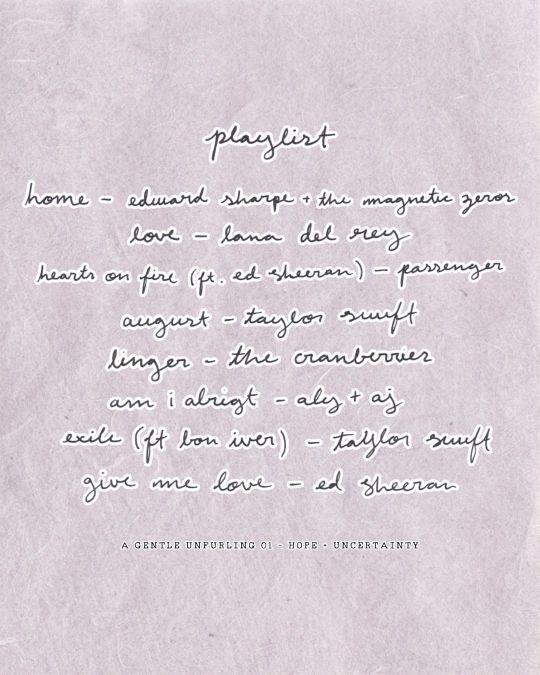 playlist
home - edward sharpe + the magnetic zeros
love - lana del rey
hearts on fire (ft. ed sheeran) - passenger
august - taylor swift
linger - the cranberries
am i alrigt - aly + aj
exile (ft bon iver) - taylor swift
give me love - ed sheeran
A GENTLE UNFURLING 01 - HOPE + UNCERTAINTY